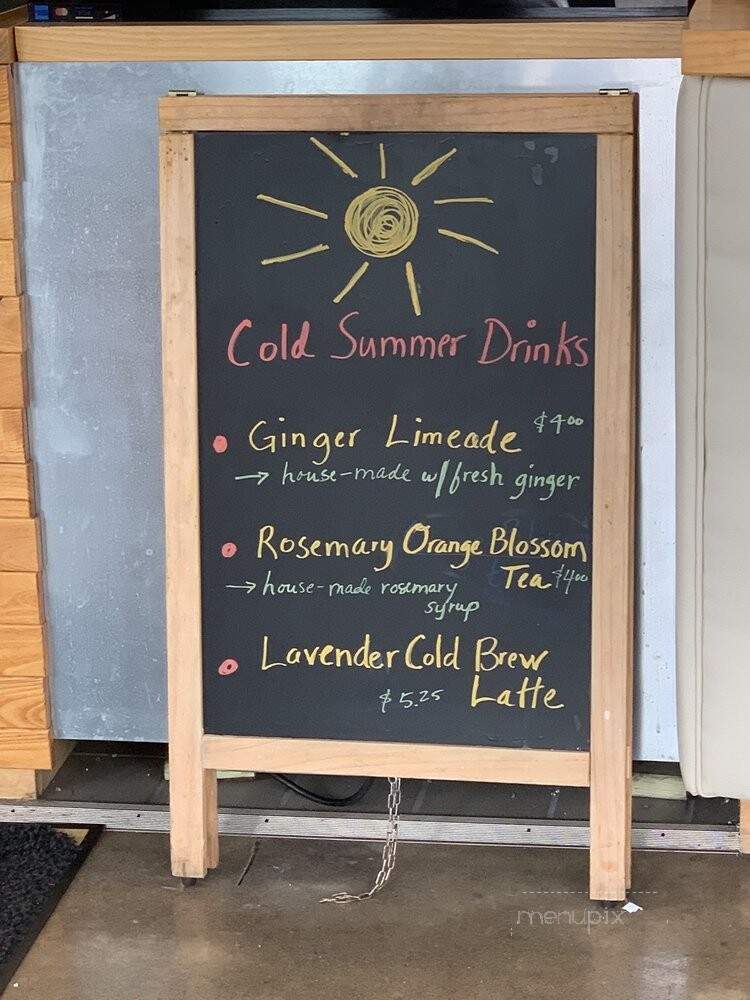 Cold Summer Drinks
Ginger Limeade $4.00
→ house-made w/fresh ginger
Rosemary Orange Blossom
Tea $4.00
→ house-made rosemary
syrup
Lavender Cold Brew
$5.25 Latte
menupix